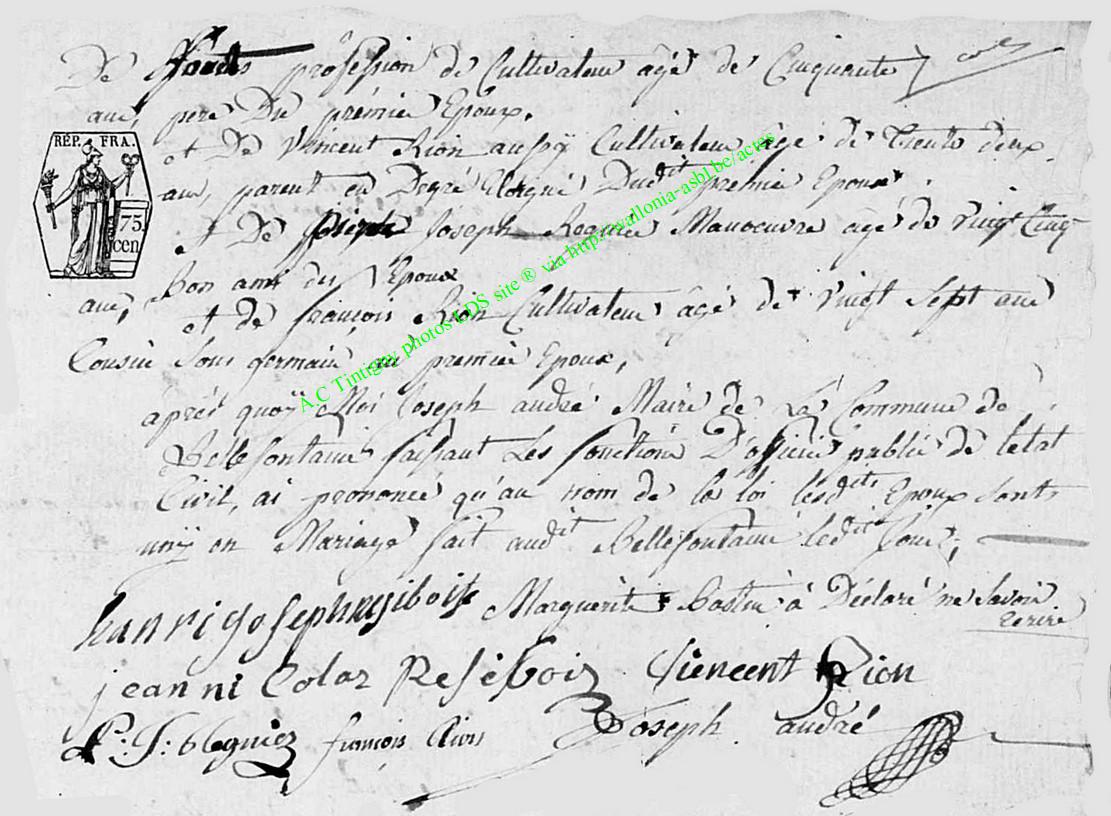 De profession de Cultivateur âgé de Cinquante
ans, pere Du premier Epoux.
et de Vincent Rion aussy Cultivateur âge de Trente deux
ans, parent en Degré Eloigné Dudit premier Epoux.
et De Joseph Regnié Manoeuvre agé de vingt Cinq
ans, bon ami des Epoux
et de françois Rion Cultivateur âgé de vingt Sept ans
Cousin Sous germain au premier Epoux,
aprés quoÿ Moi Joseph andré Maire de La Commune de
Bellefontaine faisant Les fonctions D'officier public de letat
Civil, ai prononcé qu'au nom de la loi lesdits Epoux sont
unÿ en Mariage fait audit Bellefontaine ledit Jour,
hanri Joseph resibois Marguerite à Déclaré ne Savoir
Ecrire
jean ni Colas Resibois Viencent Rion
françois Rion Joseph andré
RÉP. FRA.
75.
cen.
A.C Tintigny photos LDS site ® via http://wallonia-asbl.be/actes